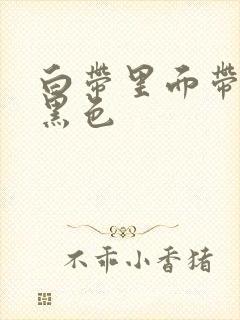 白带里面带
黑色
不乖小香猪